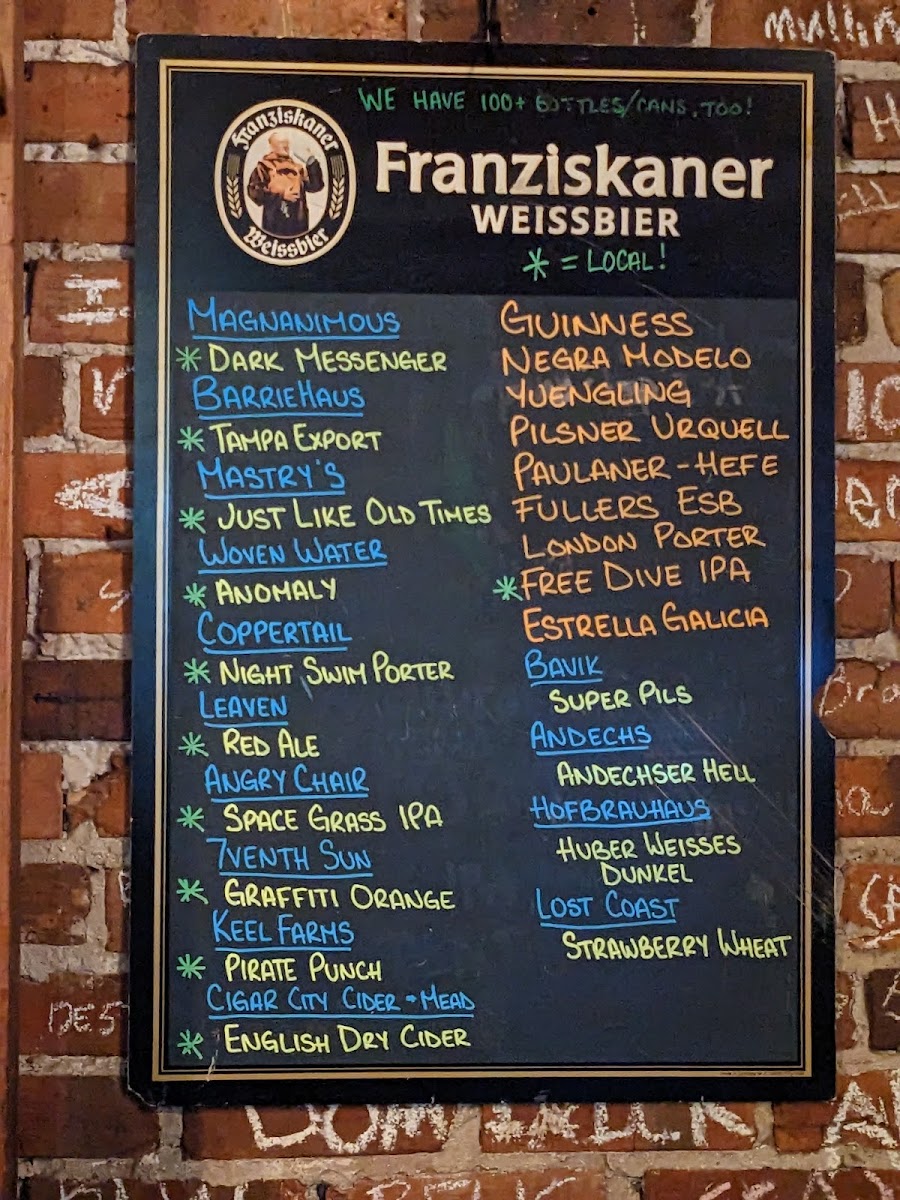 WE HAVE 100+ BOTTLES/CANS, TOO!
Franziskaner
Weissbier
Franziskaner
WEISSBIER
* = LOCAL!
MAGNANIMOUS
* DARK MESSENGER
BARRIEHAUS
* TAMPA EXPORT
MASTRY'S
* JUST LIKE OLD TIMES
WOVEN WATER
* ANOMALY
COPPERTAIL
* NIGHT SWIM PORTER
LEAVEN
* RED ALE
ANGRY CHAIR
* SPACE GRASS IPA
7VENTH SUN
* GRAFFITI ORANGE
KEEL FARMS
* PIRATE PUNCH
CIGAR CITY CIDER + MEAD
* ENGLISH DRY CIDER
GUINNESS
NEGRA MODELO
YUENGLING
PILSNER URQUELL
PAULANER-HEFE
FULLERS ESB
LONDON PORTER
* FREE DIVE IPA
ESTRELLA GALICIA
BAVIK
SUPER PILS
ANDECHS
ANDECHSER HELL
HOFBRAUHAUS
HUBER WEISSES
DUNKEL
LOST COAST
STRAWBERRY WHEAT